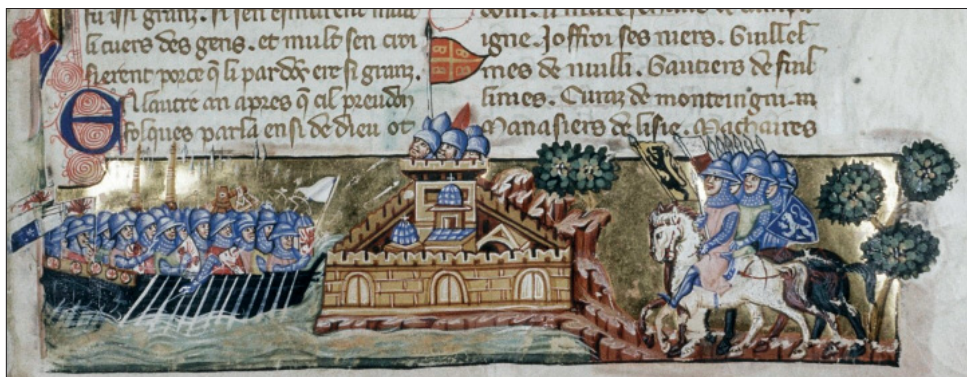 fu issi granz. si sen esmurent mult
li cuers des gens. et mult sen croi
sierent porce q̃ li pardõs ere si granz.
En lautre an apres q̃ cil preudõ
folques parla ensi de dieu ot
doin. li mareschaus de champa
igne. Joffroi ses niers. Guillel
mes de nuilli. Gautiers de fuil
limes. Euraz de monteingni. m
Manasiers de lisle. Machaires